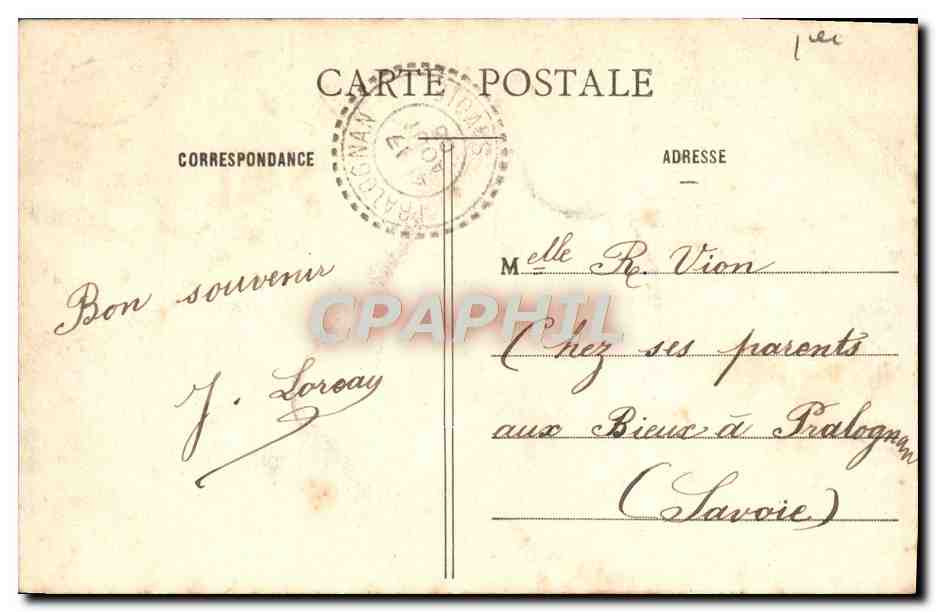 1er
CARTE POSTALE
CORRESPONDANCE
ADRESSE
PRALOGNAN
Bon souvenir
J. Loreau
Melle R. Vion
Chez ses parents
aux Bieux à Pralognan
(Savoie)
CPAPHIL